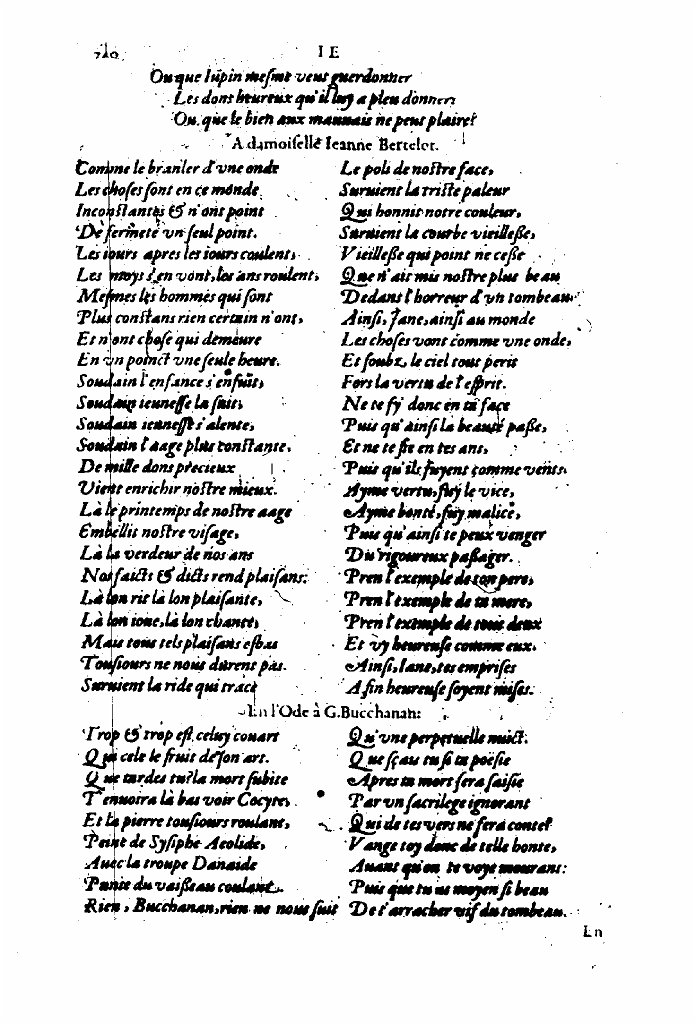 710 I E
Ou que Iupin mesme veut guerdonner
Les dons heureux qu'il luy a pleu donner:
Ou que le bien aux mauuais ne peut plaire?
A damoiselle Ieanne Bertelot.
Comme le branler d'vne onde
Les choses sont en ce monde
Inconstantes & n'ont point
De fermeté vn seul point.
Les iours apres les iours coulent,
Les moys s'en vont, les ans roulent,
Mesmes les hommes qui sont
Plus constans rien certain n'ont,
Et n'ont chose qui demeure
En vn poinct vne seule heure.
Soudain l'enfance s'enfuit,
Soudain ieunesse la suit,
Soudain ieunesse s'alente,
Soudain l'aage plus constante,
De mille dons precieux
Vient enrichir nostre mieux.
Là le printemps de nostre aage
Embellit nostre visage,
Là la verdeur de nos ans
Nos faicts & dicts rend plaisans:
Là lon rit là lon plaisante,
Là lon ioue, là lon chante,
Mais tous tels plaisans esbas
Tousiours ne nous durent pas.
Suruient la ride qui trace
Le poli de nostre face,
Suruient la triste paleur
Qui honnit notre couleur,
Suruient la courbe vieillesse,
Vieillesse qui point ne cesse
Que n'ait mis nostre plus beau
Dedans l'horreur d'vn tombeau.
Ainsi, Iane, ainsi au monde
Les choses vont comme vne onde,
Et soubz le ciel tout perit
Fors la vertu de l'esprit.
Ne te fy donc en ta face
Puis qu'ainsi la beauté passe,
Et ne te fie en tes ans,
Puis qu'ils fuyent comme vents.
Ayme vertu, fuy le vice,
Ayme bonté, fuy malice,
Puis qu'ainsi te peux venger
Du rigoureux passager.
Pren l'exemple de ton pere,
Pren l'exemple de ta mere,
Pren l'exemple de tous deux
Et vy heureuse comme eux.
Ainsi, Iane, tes emprises
A fin heureuse soyent mises.
En l'Ode à G. Bucchanan:
Trop & trop est celuy couart
Qui cele le fruit de son art.
Que tardes tu? la mort subite
T'enuoira là bas voir Cocyte,
Et la pierre tousiours roulant,
Peine de Sysiphe Aeolide,
Auec la troupe Danaide
Punie du vaisseau coulant.
Rien, Bucchanan, rien ne nous suit
Qu'vne perpetuelle nuict.
Que sçau tu si ta poësie
Apres ta mort sera saisie
Par vn sacrilege ignorant
Qui de tes vers ne fera conte?
Vange toy donc de telle honte,
Auant qu'on te voye mourant:
Puis que tu as moyen si beau
De t'arracher vif du tombeau.
En